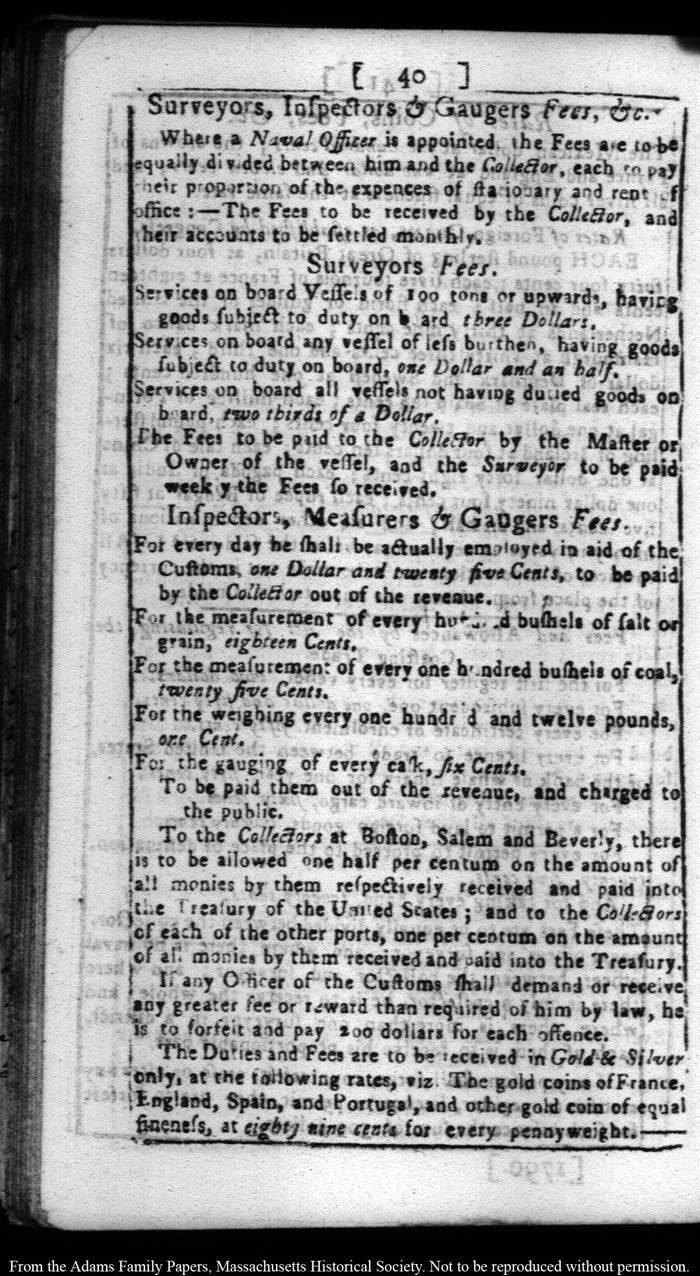 [ 40 ]
Surveyors, Inſpectors & Gaugers Fees, &c.
Where a Naval Officer is appointed, the Fees are to be
equally divided between him and the Collector, each to pay
their proportion of the expences of ſtationary and rent of
office :—The Fees to be received by the Collector, and
their accounts to be ſettled monthly.
Surveyors Fees.
Services on board Veſſels of 100 tons or upwards, having
goods ſubject to duty on b ard three Dollars.
Services on board any veſſel of leſs burthen, having goods
ſubject to duty on board, one Dollar and an half.
Services on board all veſſels not having dutied goods on
board, two thirds of a Dollar.
The Fees to be paid to the Collector by the Maſter or
Owner of the veſſel, and the Surveyor to be paid
week y the Fees ſo received.
Inſpectors, Meaſurers & Gaugers Fees.
For every day he ſhall be actually employed in aid of the
Cuſtoms, one Dollar and twenty five Cents, to be paid
by the Collector out of the revenue.
For the meaſurement of every hundred buſhels of ſalt or
grain, eighteen Cents.
For the meaſurement of every one hundred buſhels of coal,
twenty five Cents.
For the weighing every one hundr d and twelve pounds,
one Cent.
For the gauging of every caſk, ſix Cents.
To be paid them out of the revenue, and charged to
the public.
To the Collectors at Boſton, Salem and Beverly, there
is to be allowed one half per centum on the amount of
all monies by them reſpectively received and paid into
the Treaſury of the United States ; and to the Collectors
of each of the other ports, one per centum on the amount
of all monies by them received and paid into the Treaſury.
If any Officer of the Cuſtoms ſhall demand or receive
any greater fee or reward than required of him by law, he
is to forfeit and pay 200 dollars for each offence.
The Duties and Fees are to be received in Gold & Silver
only, at the following rates, viz. The gold coins of France,
England, Spain, and Portugal, and other gold coin of equal
fineneſs, at eighty nine cents for every pennyweight.—
[1790]
From the Adams Family Papers, Massachusetts Historical Society. Not to be reproduced without permission.